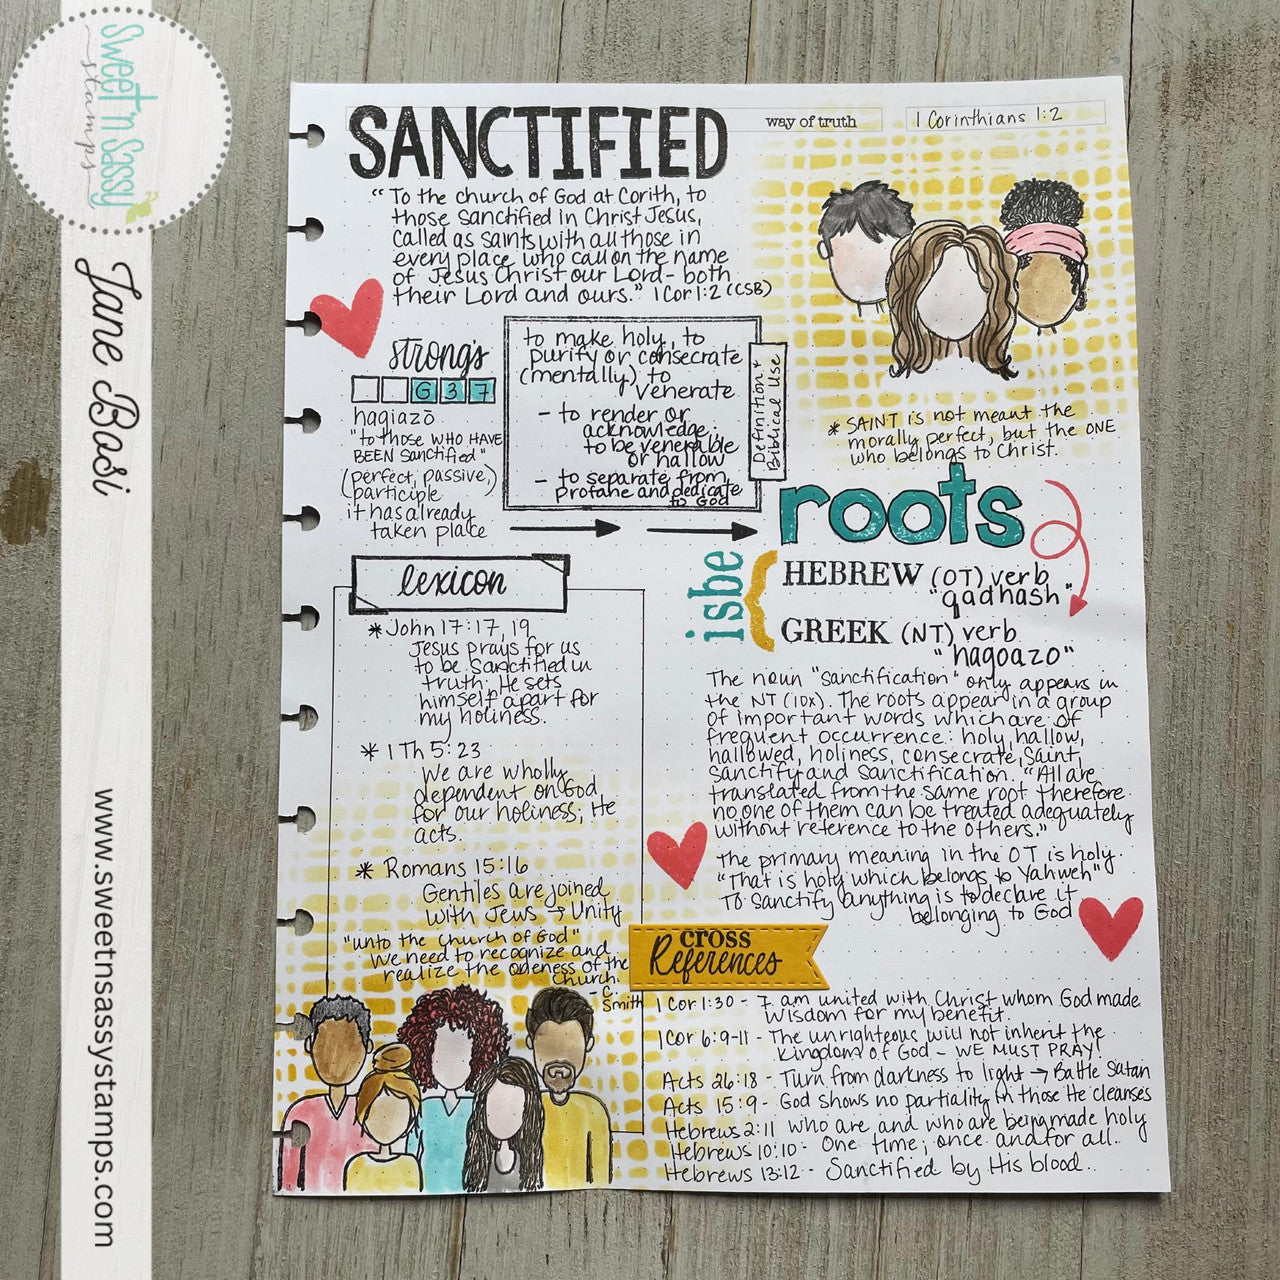 Sweet 'n Sassy
stamps
Jane Bosi
www.sweetnsassystamps.com
SANCTIFIED
way of truth
1 Corinthians 1:2
"To the church of God at Corith, to
those sanctified in Christ Jesus,
called as saints with all those in
every place who call on the name
of Jesus Christ our Lord - both
their Lord and ours." 1 Cor 1:2 (CSB)
strong's
G 3 7
hagiazō
"to those WHO HAVE
BEEN Sanctified"
(perfect, passive,)
participle
it has already
taken place
to make holy, to
purify or consecrate
(mentally) to
venerate
- to render or
acknowledge;
to be venerable
or hallow
- to separate from
profane and dedicate
to God
Definition +
Biblical Use
* SAINT is not meant the
morally perfect, but the ONE
who belongs to Christ.
roots
isbe
HEBREW (OT) verb
"qadhash"
GREEK (NT) verb
"hagoazo"
The noun "sanctification" only appears in
the NT (10x). The roots appear in a group
of important words which are of
frequent occurrence: holy, hallow,
hallowed, holiness, consecrate, saint,
sanctify and sanctification. "All are
translated from the same root therefore
no one of them can be treated adequately
without reference to the others."
The primary meaning in the OT is holy.
"That is holy which belongs to Yahweh"
To sanctify anything is to declare it
belonging to God
lexicon
* John 17:17, 19
Jesus prays for us
to be sanctified in
truth. He sets
himself apart for
my holiness.
* 1 Th 5:23
We are wholly
dependent on God
for our holiness; He
acts.
* Romans 15:16
Gentiles are joined
with Jews → Unity
"unto the church of God"
We need to recognize and
realize the oneness of the
church.
- C.
Smith
CROSS
References
1 Cor 1:30 - I am united with Christ whom God made
wisdom for my benefit.
1 Cor 6:9-11 - The unrighteous will not inherit the
Kingdom of God - WE MUST PRAY!
Acts 26:18 - Turn from darkness to light → Battle Satan
Acts 15:9 - God shows no partiality in those He cleanses
Hebrews 2:11 who are and who are being made holy
Hebrews 10:10 - One time; once and for all.
Hebrews 13:12 - Sanctified by His blood.